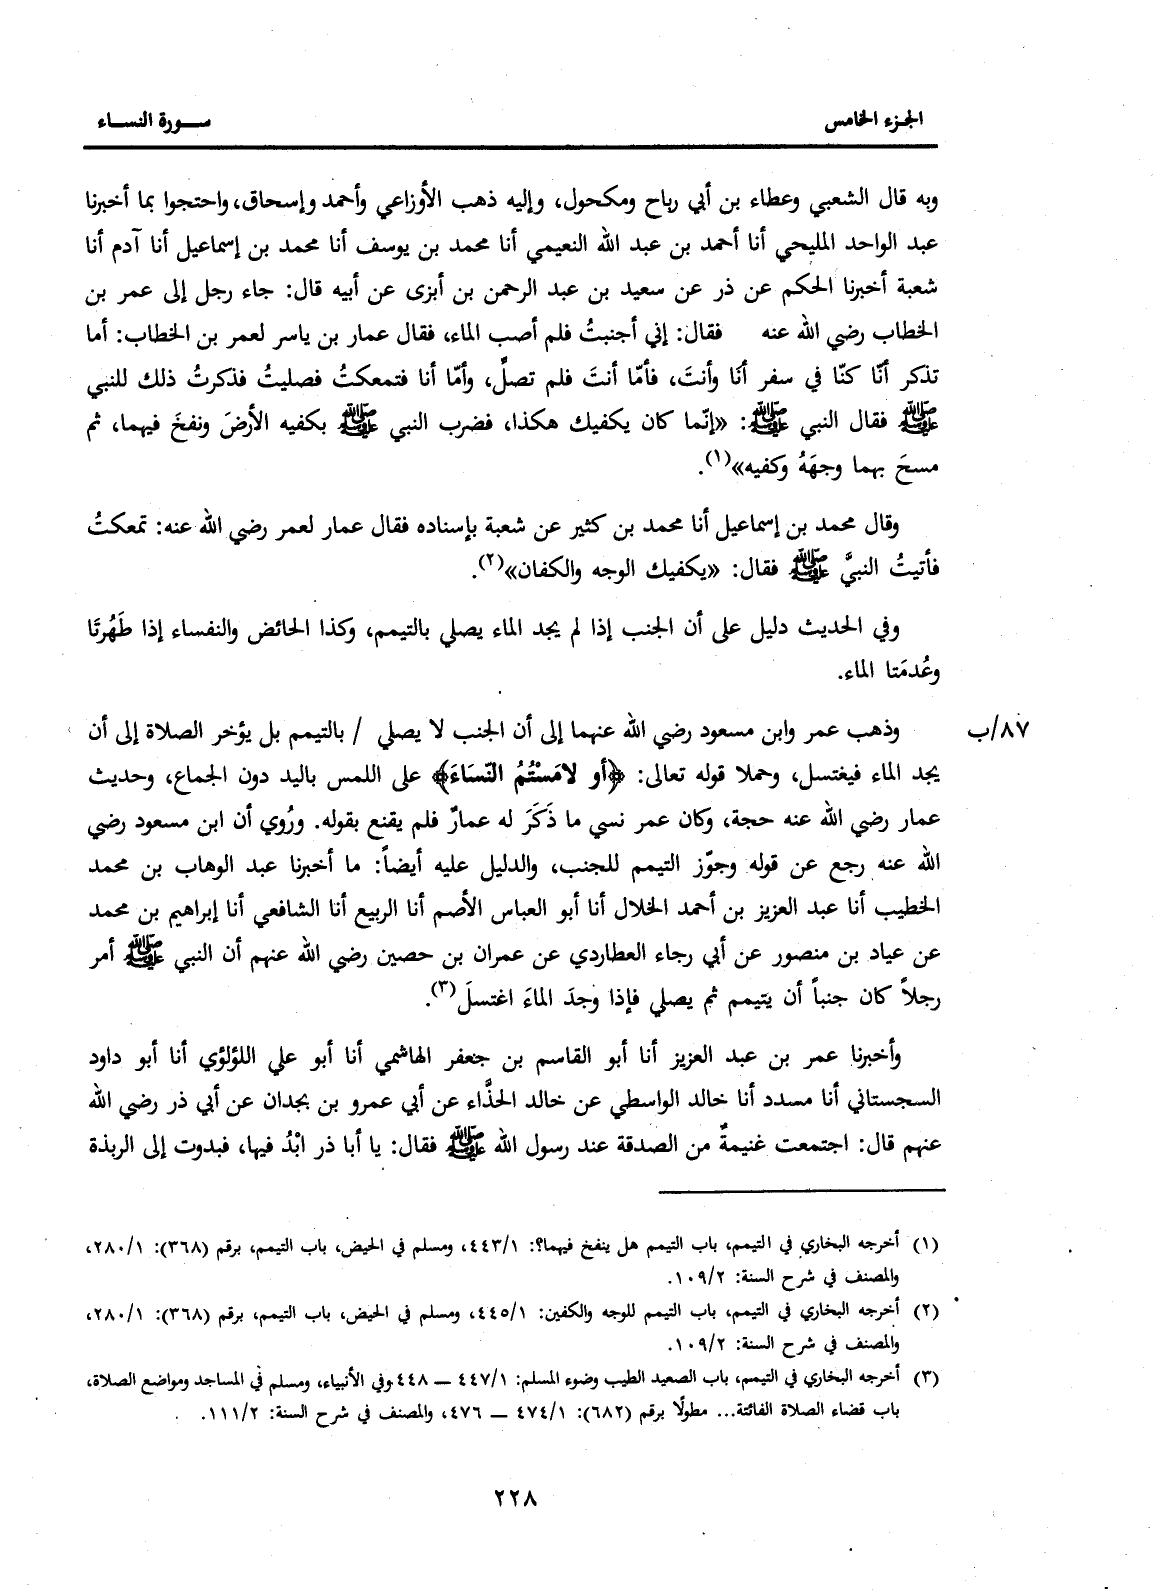 الجزء الخامس
سورة النساء
وبه قال الشعبي وعطاء بن أبي رباح ومكحول، وإليه ذهب الأوزاعي وأحمد وإسحاق، واحتجوا بما أخبرنا
عبد الواحد المليحي أنا أحمد بن عبد الله النعيمي أنا محمد بن يوسف أنا محمد بن إسماعيل أنا آدم أنا
شعبة أخبرنا الحكم عن ذر عن سعيد بن عبد الرحمن بن أبزى عن أبيه قال: جاء رجل إلى عمر بن
الخطاب رضي الله عنه فقال: إني أجنبتُ فلم أصب الماء، فقال عمار بن ياسر لعمر بن الخطاب: أما
تذكر أنّا كنّا في سفر أنَا وأنتَ، فأمّا أنتَ فلم تصلِّ، وأمّا أنا فتمعكتُ فصليتُ فذكرتُ ذلك للنبي
ﷺ فقال النبي ﷺ: «إنّما كان يكفيك هكذا، فضرب النبي ﷺ بكفيه الأرضَ ونفخَ فيهما، ثم
مسحَ بهما وجهَهُ وكفيه»(١).
وقال محمد بن إسماعيل أنا محمد بن كثير عن شعبة بإسناده فقال عمار لعمر رضي الله عنه: تمعكتُ
فأتيتُ النبيَّ ﷺ فقال: «يكفيك الوجه والكفان»(٢).
وفي الحديث دليل على أن الجنب إذا لم يجد الماء يصلي بالتيمم، وكذا الحائض والنفساء إذا طَهُرتَا
وعُدمَتا الماء.
وذهب عمر وابن مسعود رضي الله عنهما إلى أن الجنب لا يصلي / بالتيمم بل يؤخر الصلاة إلى أن
٨٧/ب
يجد الماء فيغتسل، وحملا قوله تعالى: ﴿أو لامَسْتُمُ النّسَاءَ﴾ على اللمس باليد دون الجماع، وحديث
عمار رضي الله عنه حجة، وكان عمر نسي ما ذَكَرَ له عمارٌ فلم يقنع بقوله. ورُوي أن ابن مسعود رضي
الله عنه رجع عن قوله وجوّز التيمم للجنب، والدليل عليه أيضاً: ما أخبرنا عبد الوهاب بن محمد
الخطيب أنا عبد العزيز بن أحمد الخلال أنا أبو العباس الأصم أنا الربيع أنا الشافعي أنا إبراهيم بن محمد
عن عياد بن منصور عن أبي رجاء العطاردي عن عمران بن حصين رضي الله عنهم أن النبي ﷺ أمر
رجلاً كان جنباً أن يتيمم ثم يصلي فإذا وجدَ الماءَ اغتسلَ(٣).
وأخبرنا عمر بن عبد العزيز أنا أبو القاسم بن جعفر الهاشمي أنا أبو علي اللؤلؤي أنا أبو داود
السجستاني أنا مسدد أنا خالد الواسطي عن خالد الحذَّاء عن أبي عمرو بن بجدان عن أبي ذر رضي الله
عنهم قال: اجتمعت غنيمةٌ من الصدقة عند رسول الله ﷺ فقال: يا أبا ذر ابْدُ فيها، فبدوت إلى الربذة
(١) أخرجه البخاري في التيمم، باب التيمم هل ينفخ فيهما؟: ٤٤٣/١، ومسلم في الحيض، باب التيمم، برقم (٣٦٨): ٢٨٠/١،
والمصنف في شرح السنة: ١٠٩/٢.
(٢) أخرجه البخاري في التيمم، باب التيمم للوجه والكفين: ٤٤٥/١، ومسلم في الحيض، باب التيمم، برقم (٣٦٨): ٢٨٠/١،
والمصنف في شرح السنة: ١٠٩/٢.
(٣) أخرجه البخاري في التيمم، باب الصعيد الطيب وضوء المسلم: ٤٤٧/١ — ٤٤٨ وفي الأنبياء، ومسلم في المساجد ومواضع الصلاة،
باب قضاء الصلاة الفائتة... مطولًا برقم (٦٨٢): ٤٧٤/١ — ٤٧٦، والمصنف في شرح السنة: ١١١/٢.
٢٢٨